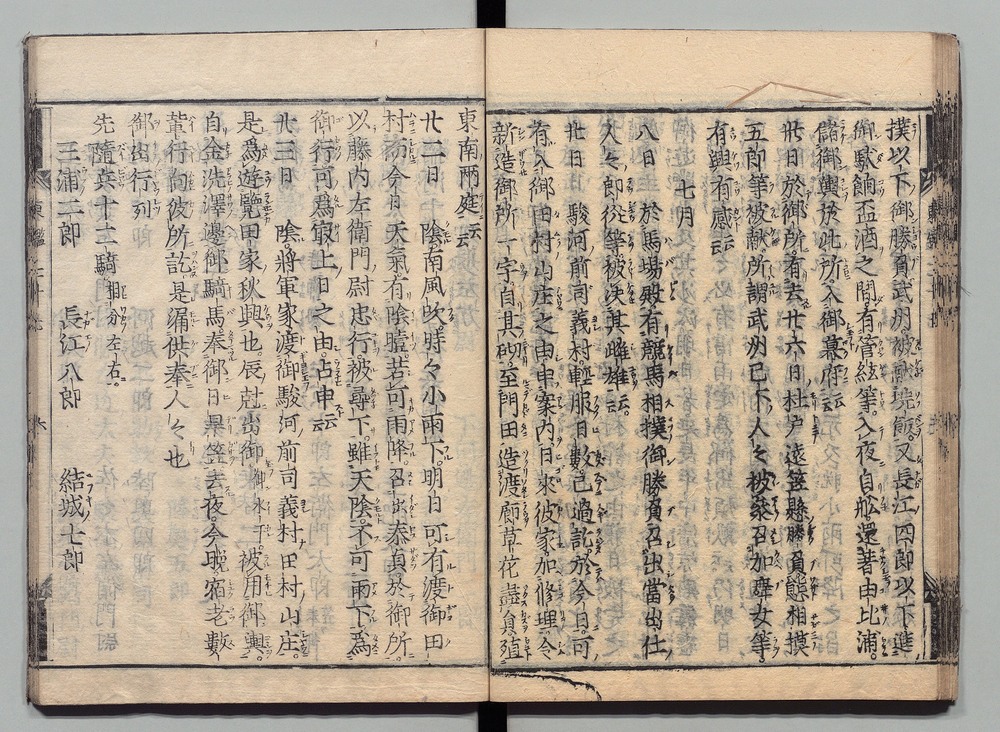 撲以下御勝負武州被献垸飯又長江四郎以下進
御駄餉盃酒之間有管絃等入夜自舩還著由比浦
儲御輿於此所入御幕府云云
廿日於御所有去廿六日杜戸遠笠懸勝負餘相撲
五郎等被献所謂武州已下人々被葵召加舞女等
有興有感云云
七月
八日於馬場殿有競馬相撲御勝負召出當出仕
人々郎從等被决其雌雄云云
廿日駿河前司義村輕服日數已過訖於今日可
有入御田村山庄之由申案内日來彼家加修理令
新造御所一宇自其砌至門田造渡廊草花盡員殖
東南兩庭云云
廿二日陰南風吹時々小雨下明日可有渡御田
村而今日天氣有陰曀若可雨降召出泰貞於御所
以藤内左衛門尉忠行被尋下雖天陰不可雨下爲
御行可爲最上日之由占申云云
廿三日陰將軍家渡御駿河前司義村田村山庄
是爲遊覽田家秋興也辰尅出御御水干被用御輿
自金洗澤邊御騎馬奉御日畢笠云夜令晩宿老數
輩行向彼所訖是漏供奉人々也
御出行列
先隨兵十二騎相分左右
三浦二郎 長江八郎 結城七郎